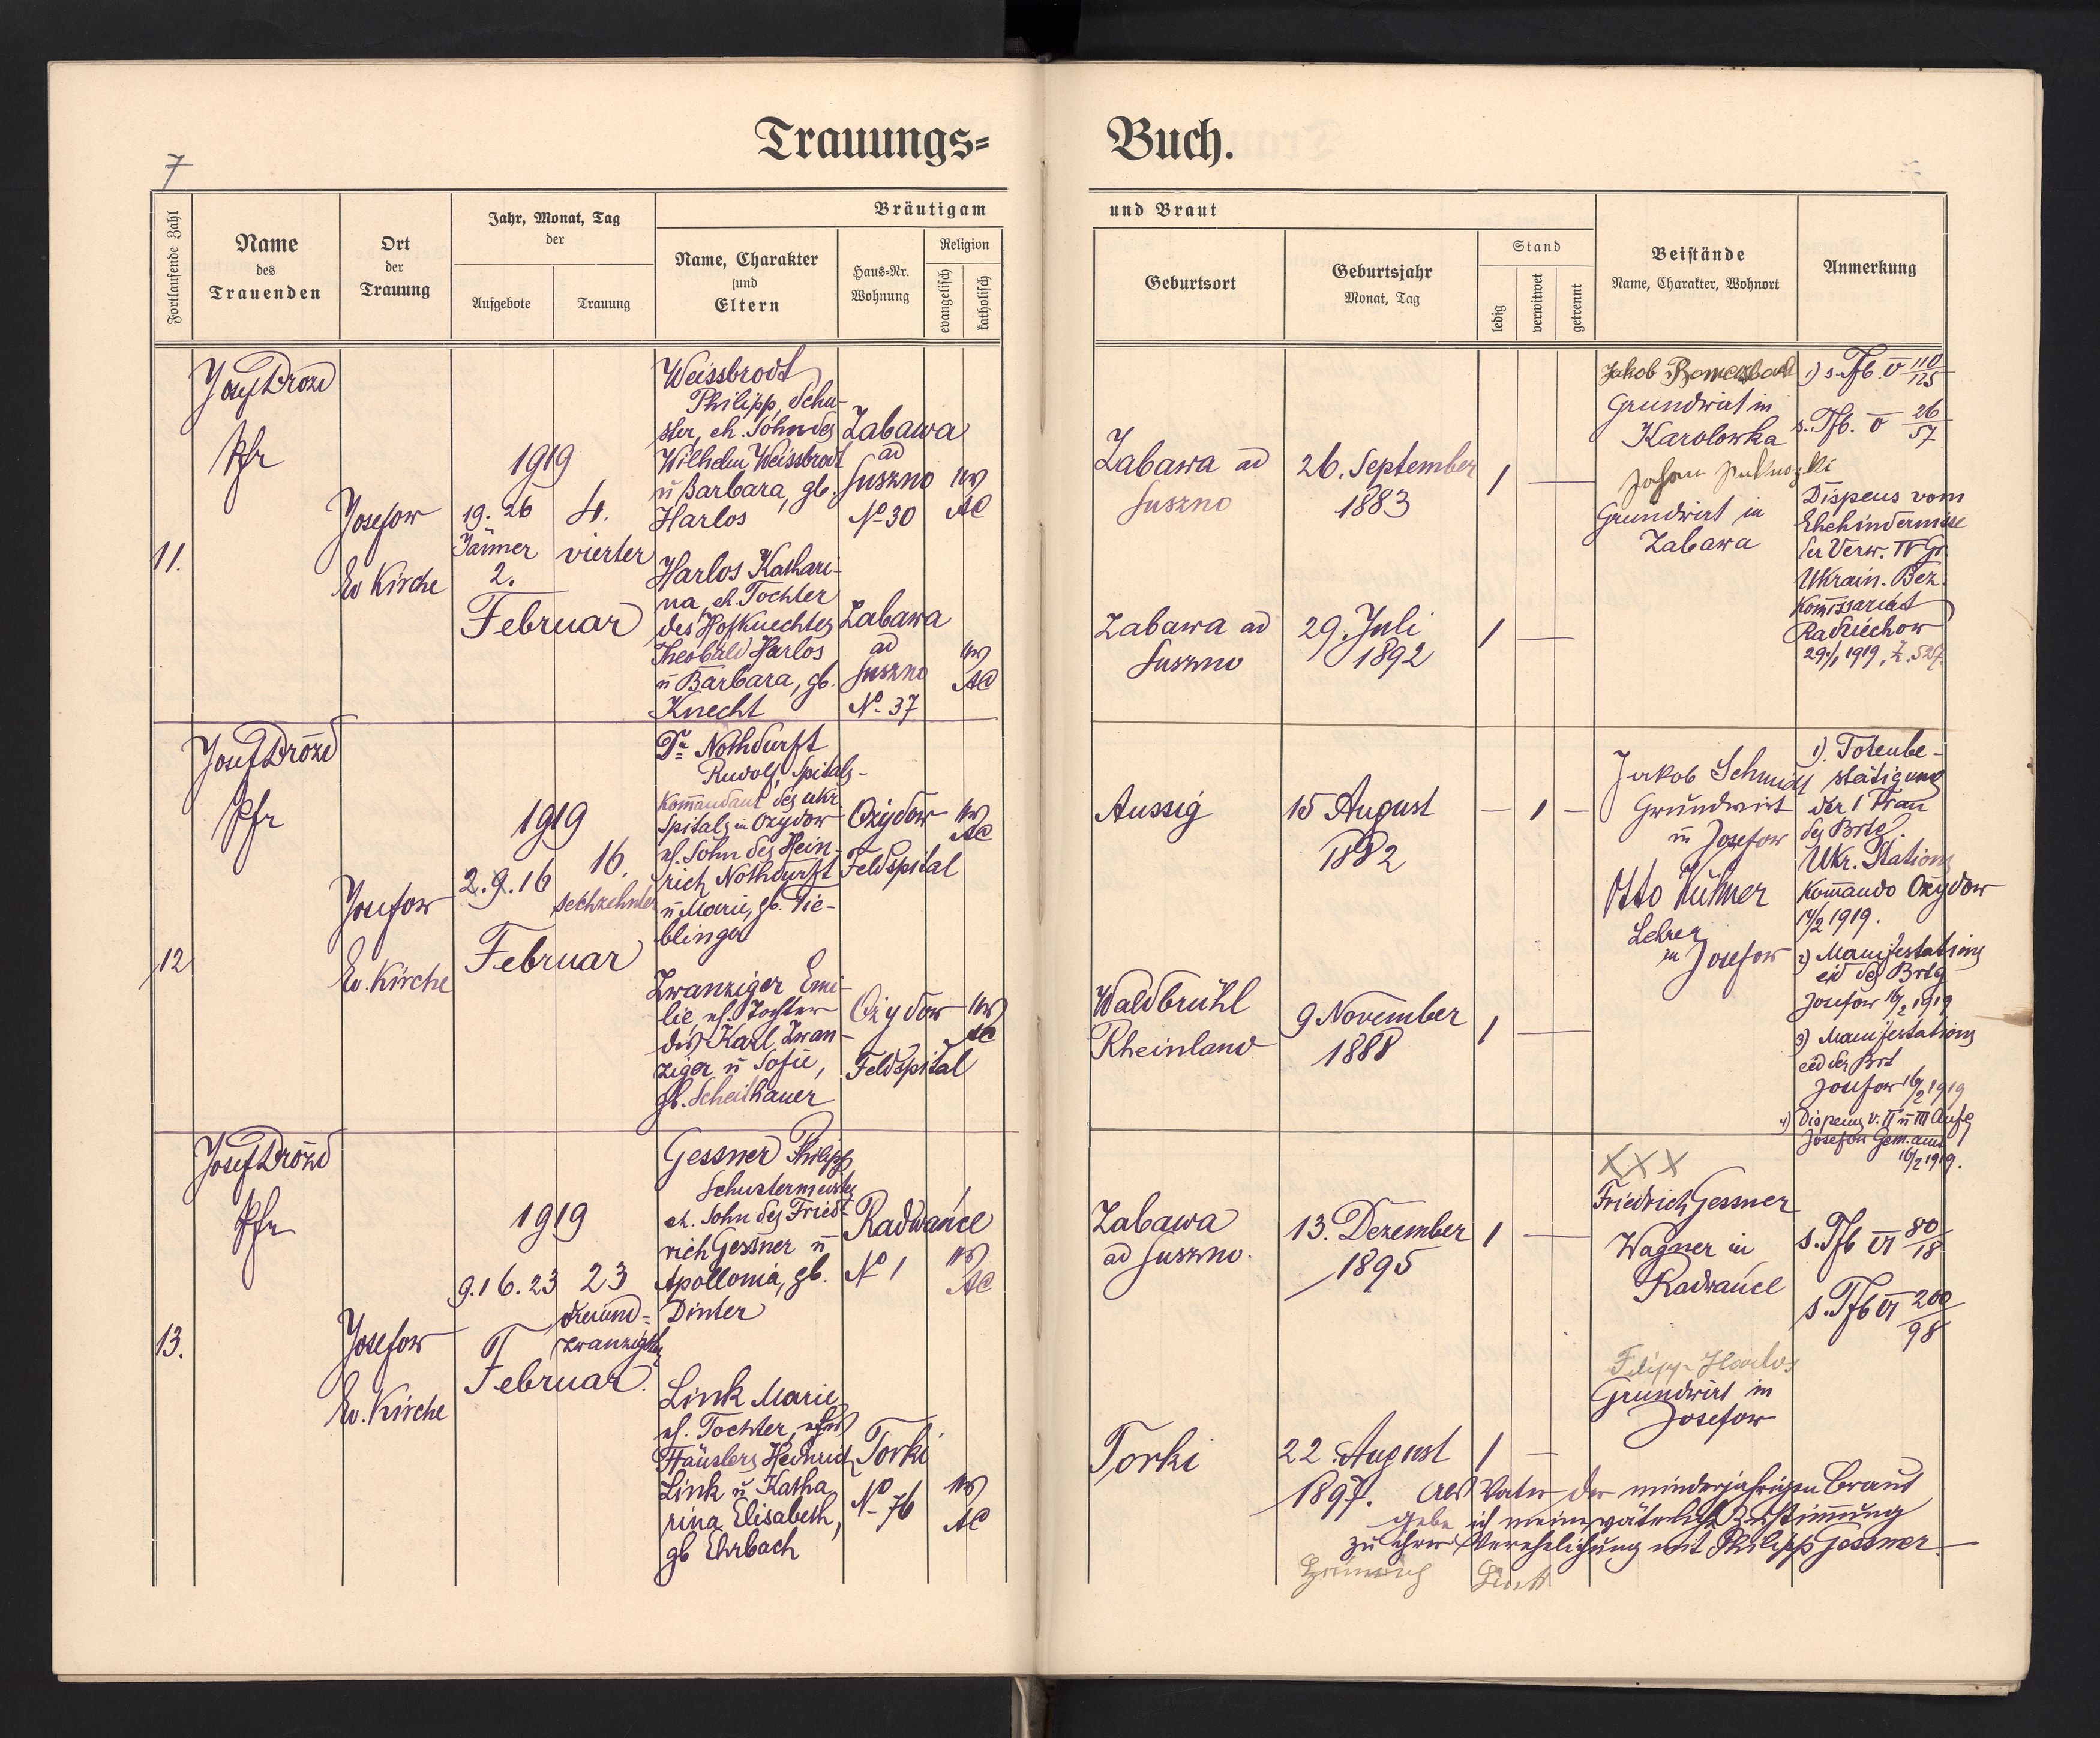 7
Trauungs=
Buch.
Fortlaufende Zahl
Name
des
Trauenden
Ort
der
Trauung
Jahr, Monat, Tag
der
Aufgebote
Trauung
Bräutigam
Name, Charakter
und
Eltern
Haus-Nr.
Wohnung
Religion
evangelisch
katholisch
und Braut
Geburtsort
Geburtsjahr
Monat, Tag
Stand
ledig
verwitwet
getrennt
Beistände
Name, Charakter, Wohnort
Anmerkung
11.
Josef Drozd
Pfr
Josefow
Ev Kirche
1919
19. 26
Jänner
2.
Februar
4.
vierter
Weissbrodt
Philipp, Schu-
ster, eh. Sohn des
Wilhelm Weissbrodt
u Barbara, gb.
Harlos
Zabawa
ad
Suszno
No 30
AC
Harlos Kathari-
na, eh. Tochter
des Hofknechtes
Theobald Harlos
u Barbara, gb.
Knecht
Zabawa
ad
Suszno
No. 37
AC
Zabawa ad
Suszno
26. September
1883
Zabawa ad
Suszno
29. Juli
1892
Jakob
Grundwirt in
Karolowka
Johann
Grundwirt in
Zabawa
1) s. Tfb. V 110/125
s. Tfb. V 26/57
Dispens vom
Ehehindernisse
der Verw. IV Gr.
Ukrain. Bez.
Kom̄issariat
Radziechow
29./1 1919, Z. 527.
12
Josef Drozd
Pfr
Josefow
Ev. Kirche
1919
2. 9. 16
Februar
16.
sechzehnter
Dr Nothdurft
Rudolf, Spitals-
Kom̄andant des ukr.
Spitals in Ozydow
eh. Sohn des Hein-
rich Nothdurft
u Marie, gb. Tie-
blinger
Ozydow
Feldspital
AC
Zwanziger Emi-
lie eh. Tochter
des Karl Zwan-
ziger u Sofie,
gb. Scheithauer
Ozydow
Feldspital
AC
Aussig
15 August
1882
Waldbrühl
Rheinland
9 November
1888
Jakob Schmidt
Grundwirt
in Josefow
Otto Kühner
Lehrer
in Josefow
1). Totenbe-
stätigung
der 1 Frau
des Brtg.
Ukr. Stations
Kom̄ando Ozydow
14/2 1919.
2) Manifestations
eid des Brtg
Josefow 16/2 1919
3) Manifestations
eid der Brt
Josefow 16/2 1919
4) Dispens v. II u III Aufg
Josefow Gem. amt
16/2 1919.
13.
Josef Drozd
Pfr
Josefow
Ev. Kirche
1919
9. 16. 23
Februar.
23
dreiund-
zwanzigster
Gessner Philipp
Schustermeister
eh. Sohn des Fried-
rich Gessner u
Apollonia, gb.
Dinter
Radwańce
No 1
AC
Link Marie
eh. Tochter, des
Häuslers Heinrich
Link u Katha
rina Elisabeth,
gb Ehrbach
Torki
No 76
AC
Zabawa
ad Suszno.
13. Dezember
1895
Torki
22. August
1897.
XXX
Friedrich Gessner
Wagner in
Radwańce
Filipp Harlos
Grundwirt in
Josefow
s. Tfb VI 80/18
s. Tfb VI 200/98
Als Vater der minderjährigen Braut
gebe ich meine väterliche Zustim̄ung
zu ihrer Verehelichung mit Philipp Gessner.
Heinrich Link